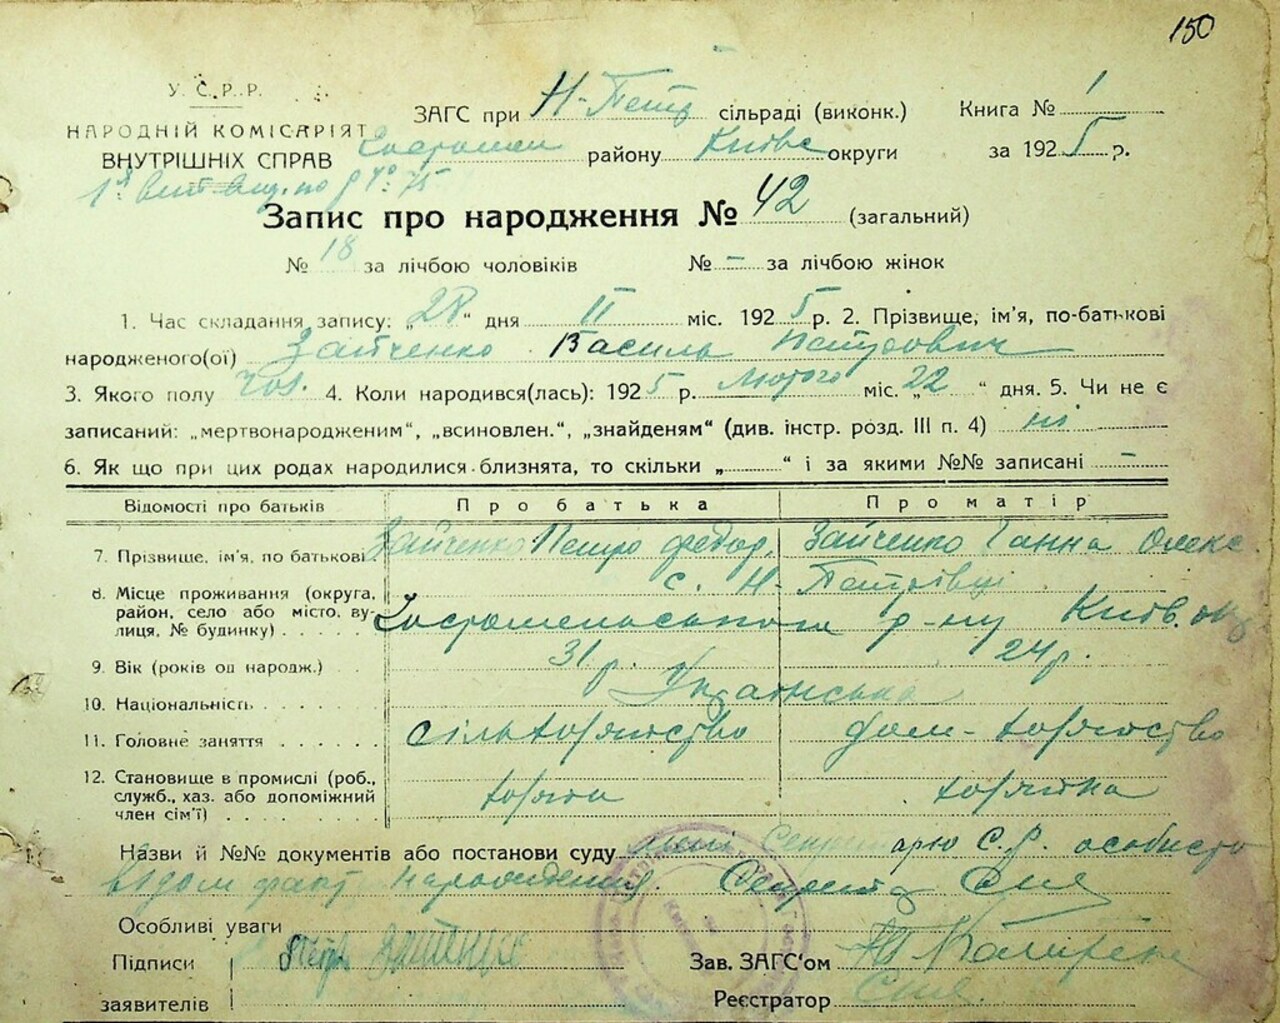 150
У. С. Р. Р.
НАРОДНІЙ КОМІСАРІЯТ
ВНУТРІШНІХ СПРАВ
ЗАГС при Н-Петр сільраді (виконк.) Книга № 1
району Київс округи за 1925 р.
Запис про народження № 42 (загальний)
№ 18 за лічбою чоловіків № – за лічбою жінок
1. Час складання запису: „28“ дня II міс. 1925 р. 2. Прізвище, ім'я, по-батькові
народженого(ої) Зайченко Василь Петрович
3. Якого полу чол. 4. Коли народився(лась): 1925 р. Лютого міс. „22“ дня. 5. Чи не є
записаний: „мертвонародженим“, „всиновлен.“, „знайденям“ (див. інстр. розд. III п. 4) ні
6. Як що при цих родах народилися близнята, то скільки „ “ і за якими №№ записані –
Відомості про батьків Про батька Про матір
7. Прізвище, ім'я, по батькові Зайченко Петро Федор. Зайченко Ганна Олекс.
8. Місце проживання (округа, район, село або місто, вулиця, № будинку) с. Н-Петрівці
р-ну Київ. окр
9. Вік (років од народж.) 31 р. 24 р.
10. Національність Українська
11. Головне заняття сільхазяйство дом-хазяйство
12. Становище в промислі (роб., служб., хаз. або допоміжний член сім'ї)
Назви й №№ документів або постанови суду мені Секретарю С.Р. особисто
відом факт народження. Секретар
Особливі уваги
Підписи Петро Зайченко Зав. ЗАГС'ом
заявителів Реєстратор